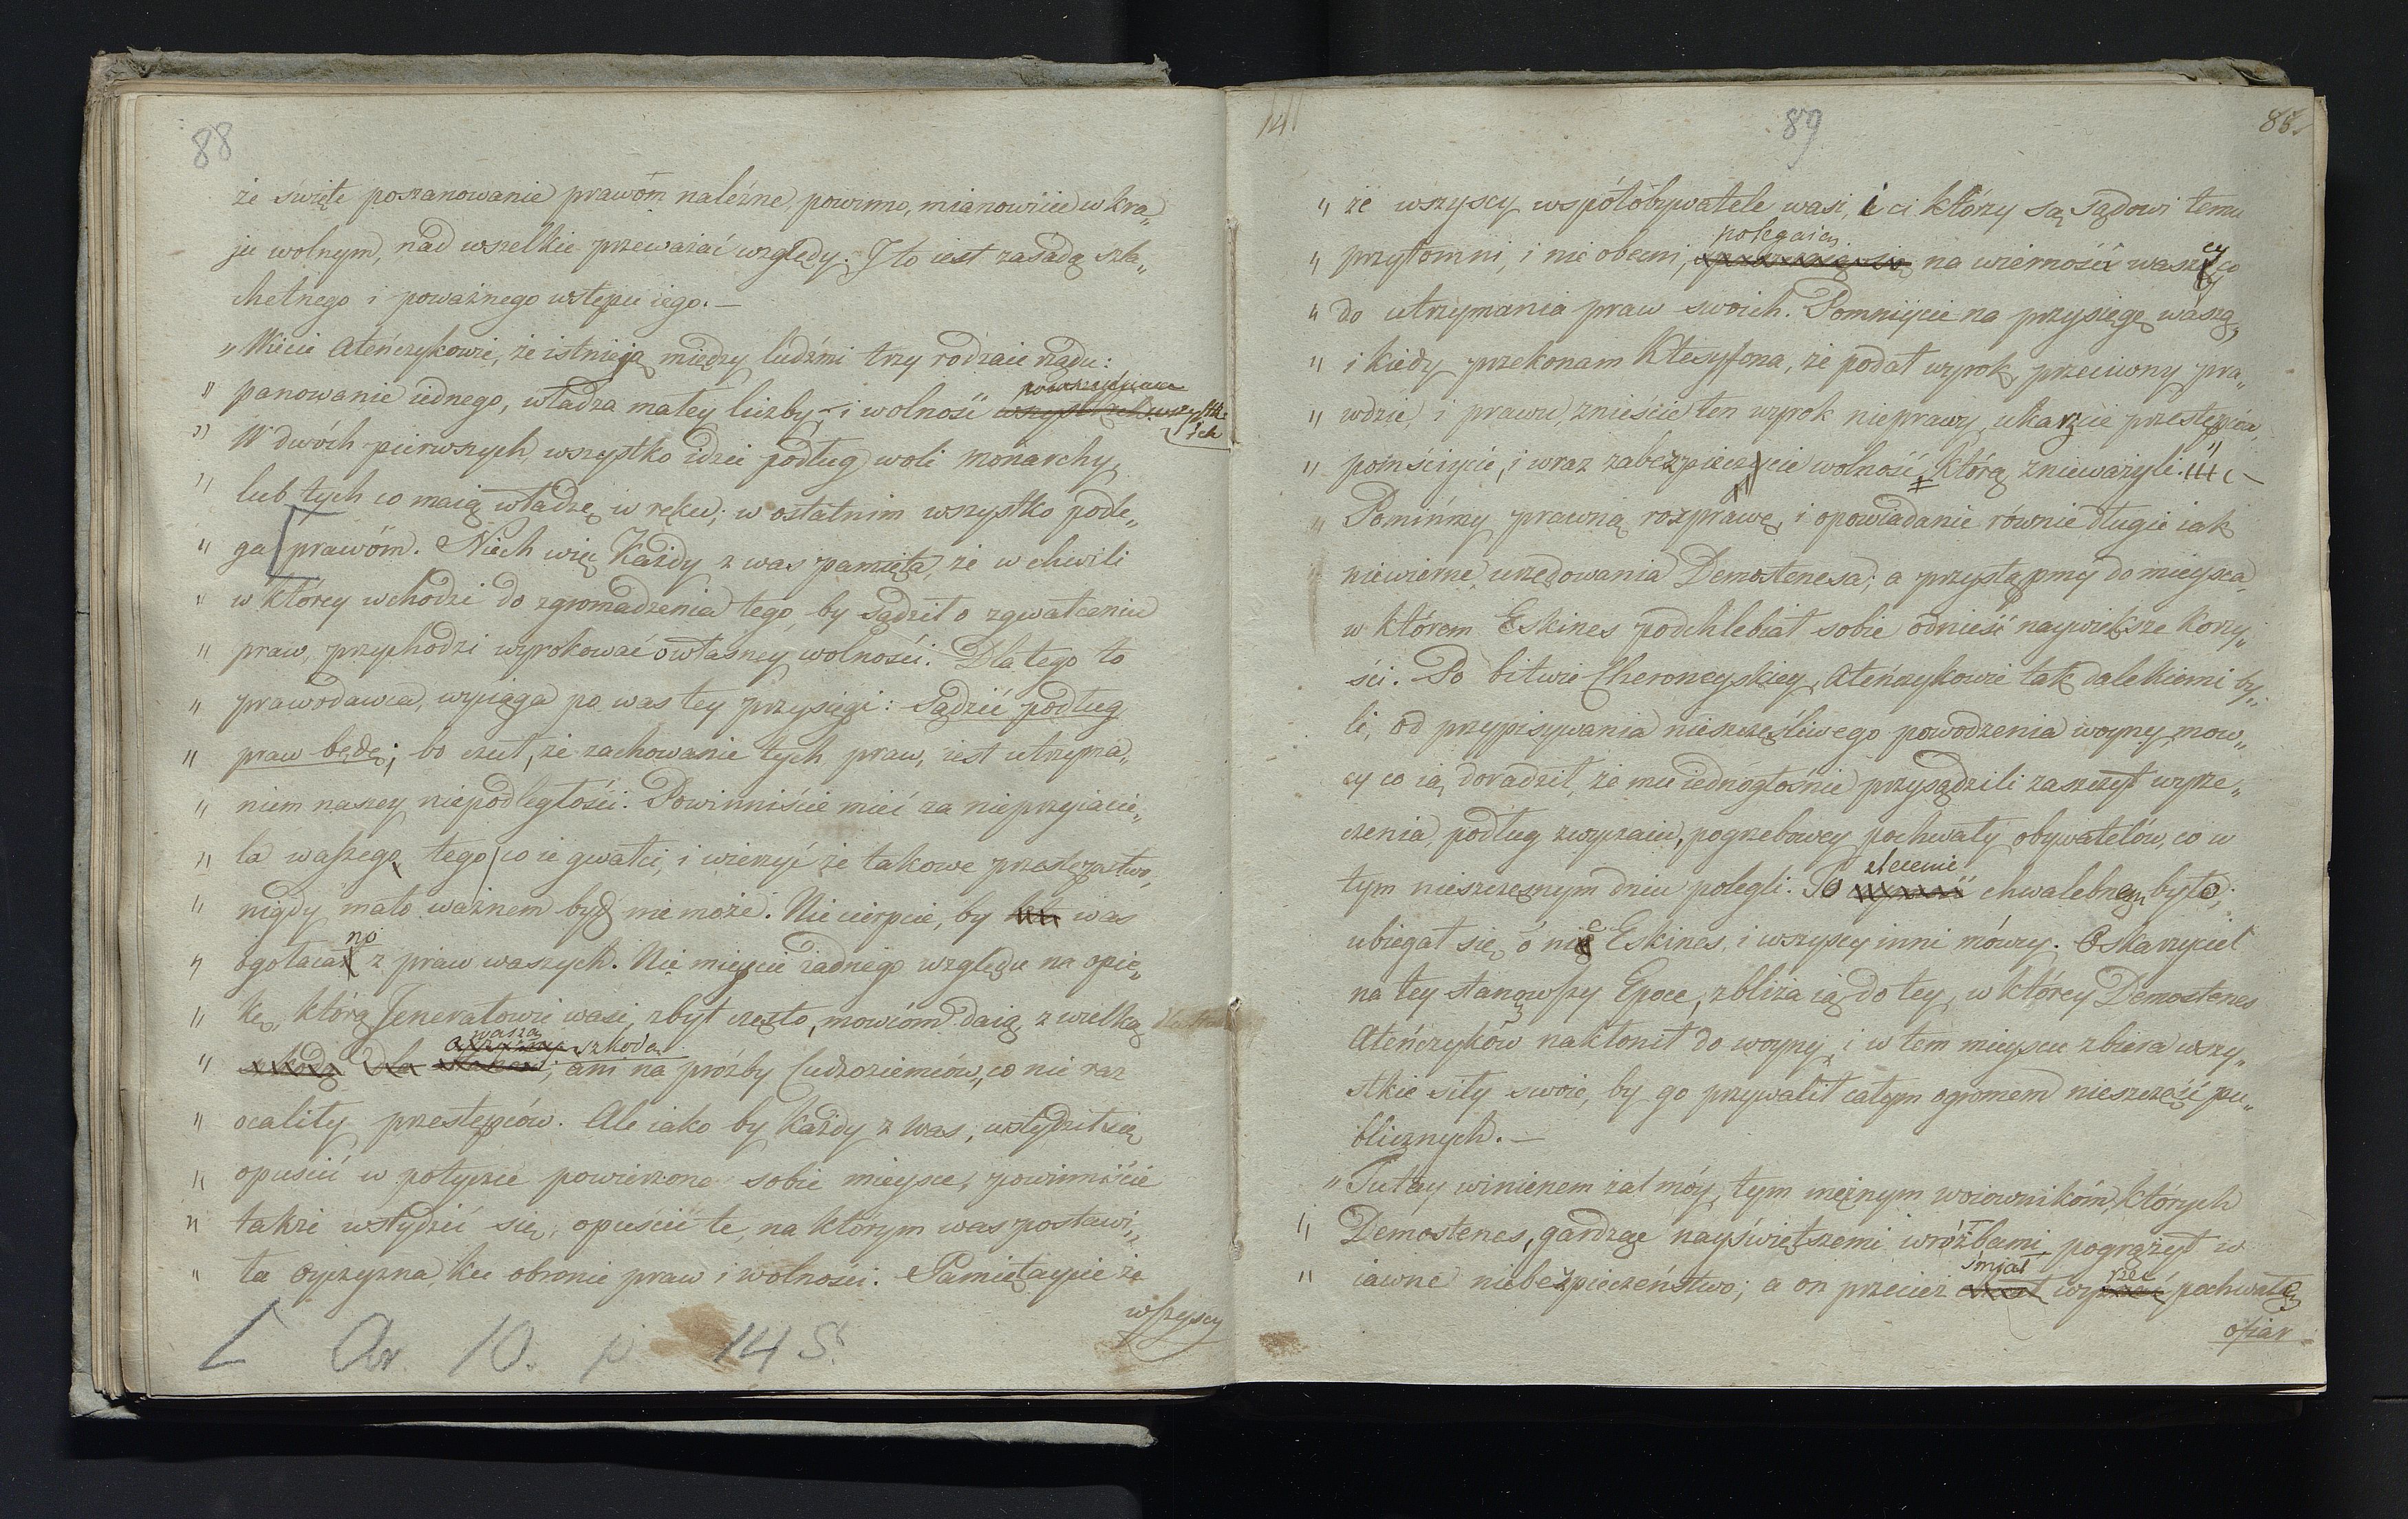 88
że święte poszanowanie prawóm należne, powinno, mianowicie w kra„
ju wolnym, nad wszelkie przeważać względy. I to iest zasadą szla„
chetnego i poważnego wstępu iego.—
„ Wiecie Ateńczykowie, że istnieją między ludźmi trzy rodzaie rządu:
" panowanie iednego, władza małey liczby – i wolność wszystkich.
" W dwóch pierwszych, wszystko idzie podług woli monarchy,
" lub tych co maią władzę w ręku; w ostatnim wszystko podle„
" ga prawóm. Niech więc każdy z was pamięta, że w chwili
" w którey wchodzi do zgromadzenia tego, by sądził o zgwałceniu
" praw, przychodzi wyrokować o własney wolności. Dla tego to
" prawodawca, wyciąga po was tey przysięgi: Sądzić podług
" praw będę; bo czuł, że zachowanie tych praw, iest utrzyma„
" niem naszey niepodległości. Powinniście mieć za nieprzyiacie„
" la waszego tego co ie gwałci, i wierzyć że takowe przestępstwo,
" nigdy mało ważnem być nie może. Nie cierpcie, by was
" ogołacano z praw waszych. Nie mieycie żadnego względu na opie„
" kę, którą Jenerałowie wasi, zbyt często, mówcóm daią, z wielką
" waszą szkodą; ani na prośby Cudzoziemców, co nie raz
" ocaliły przestępców. Ale iako by każdy z was, wstydził się
" opuścić w potyczce powierzone sobie mieysce, powinniście
" także wstydzić się, opuścić te, na którym was postawi„
" ła oyczyzna, ku obronie praw i wolności. Pamiętaycie że
wszyscy
Ar. 10. p 14 S.
14
89
88
" że wszyscy współobywatele wasi, i ci którzy są sądowi temu
" przytomni, i nie obecni, polegaią na wierności waszey co
" do utrzymania praw swoich. Pomniycie na przysięgę waszą,
" i kiedy przekonam Ktesyfona, że podał wyrok, przeciwny pra„
" wdzie, i prawu, znieście ten wyrok nieprawy, ukarzcie przestępców,
" pomścicie, i wraz zabezpieczcie wolność którą znieważyli.—
Pomińmy prawną rozprawę, i opowiadanie równie długie iak
niewierne, urzędowania Demostenesa; a przystąpmy do mieysca,
w którem Eskines podchlebiał sobie odnieść naywiększe korzy„
ści. Po bitwie Cheroneyskiey, Ateńczykowie tak dalekiemi by„
li, od przypisywania nieszczęśliwego powodzenia woyny mow„
cy co ią doradził, że mu iednogłośnie przysądzili zaszczyt wyrze„
czenia, podług zwyczaiu, pogrzebowey pochwały obywatelów, co w
tym nieszczęsnym dniu polegli. To zlecenie chwalebnem było;
ubiegał się o nie Eskines, i wszyscy inni mówcy. Oskarzyciel
na tey stanowszy Epoce, zbliża ią do tey, w którey Demostenes
Ateńczyków nakłonił do woyny, i w tem mieyscu zbiera wszy„
stkie siły swoie, by go przywalił całym ogromem nieszczęść pu„
blicznych.—
„ Tutay winienem żal móy, tym mężnym woiownikóm, których
" Demostenes, gardząc nayświętszemi wróżbami pogrążył w
" iawne niebezpieczeństwo; a on przecież śmiał wyrzec pochwałę
ofiar